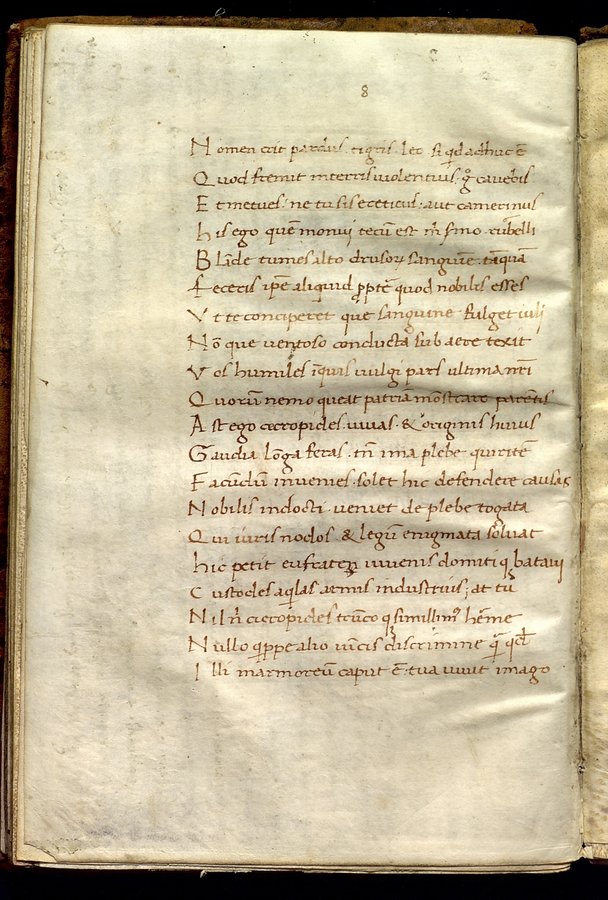 8
Nomen erit pardus. tigris. leo. si qd adhuc ē
Quod fremit in terris uiolentius. gͦ cauebis
Et metues. ne tu sis creticus. aut camerinus
his ego quem monui tecū est m̄ sermo. rubelli
Blāde tumes alto drusoꝝ sanguine. tāquā
Feceris ip̄e aliquid ꝓpt̄ quod nobilis esses
Vt te conciperet que sanguine fulget iuli
Nō que uentoso conducta sub aere texit
Vos humiles inquis uulgi pars ultima nr̄i
Quorū nemo queat patriā mōstrare parentis
Ast ego cecropides. uiuas. & originis huius
Gaudia lōga feras. tn̄ ima plebe quiritē
Facūdū inuenies. solet hic defendere causas
Nobilis indocti. ueniet de plebe togata
Qui iuris nodos & legū enigmata soluat
hic petit eufraten iuuenis domitiq; bataui
Custodes aq̇las armis industrius; at tu
Nil n̄ cecropides trūcoq; simillimꝰ herme
Nullo q̇ppe alio uincis discrimine qͣ̄ qd
Illi marmoreū caput ē. tua uiuit imago